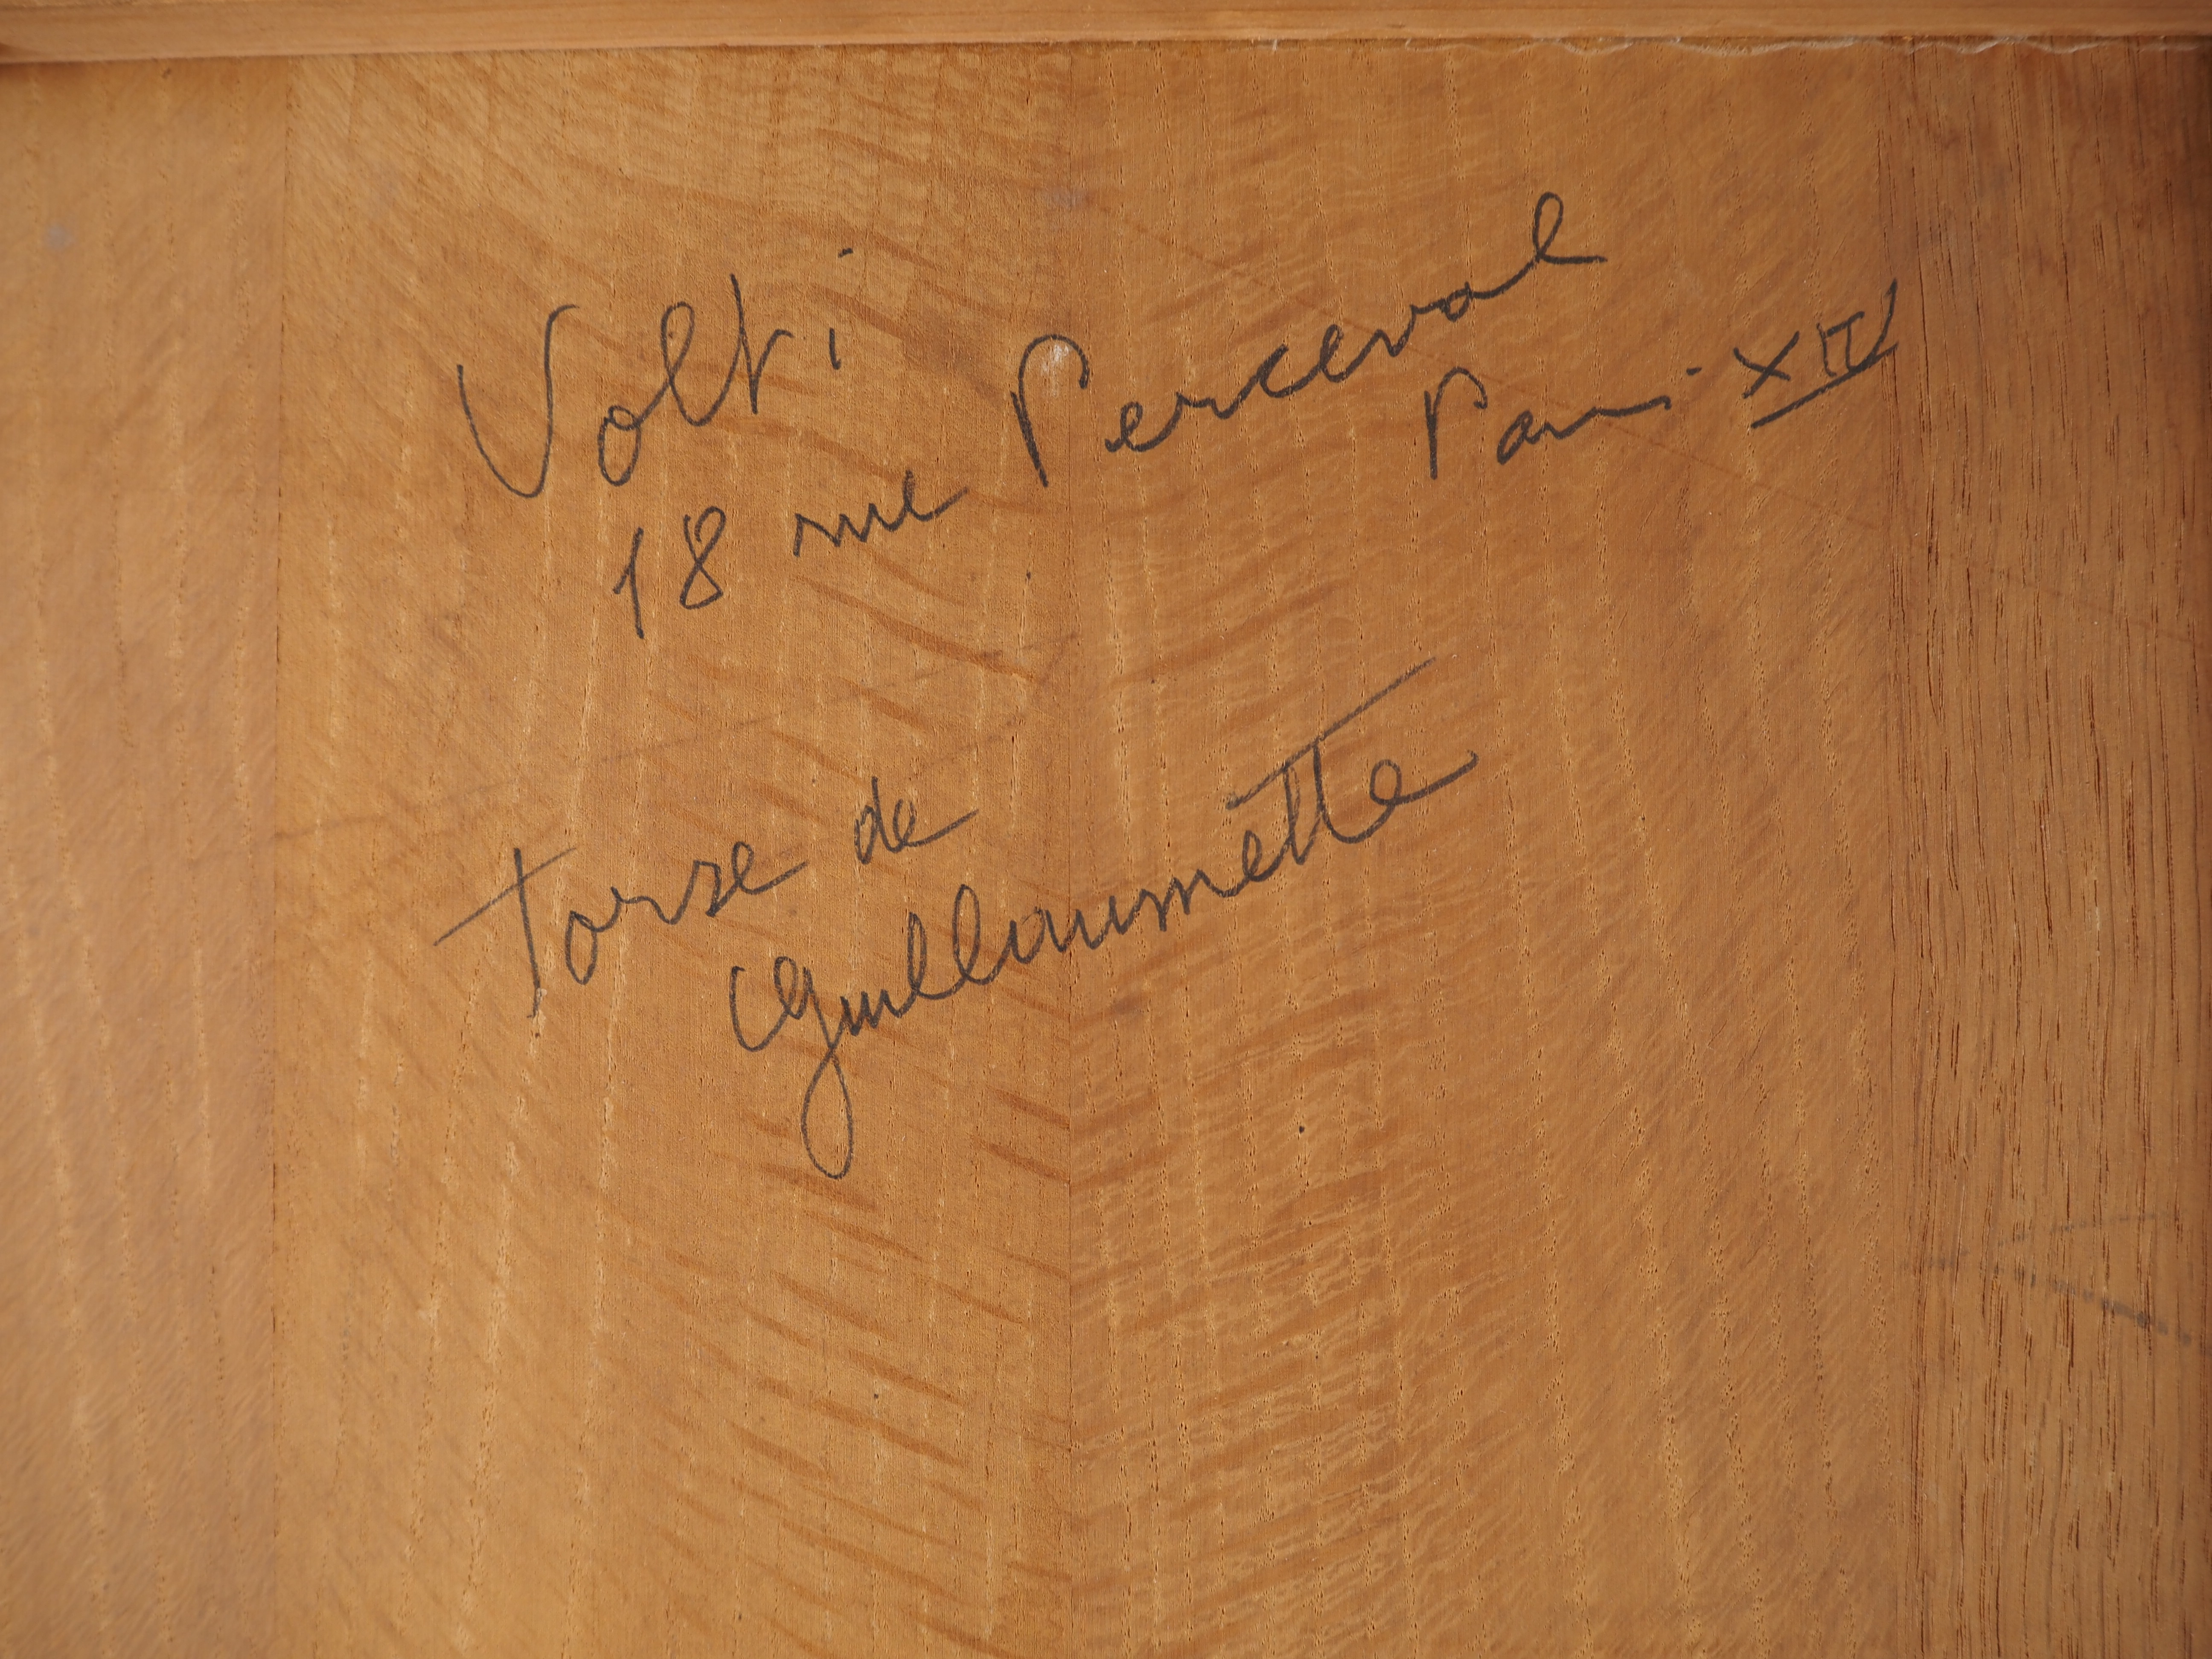 Volti
18 rue Perceval
Paris XIV
Torse de
Guillaumette